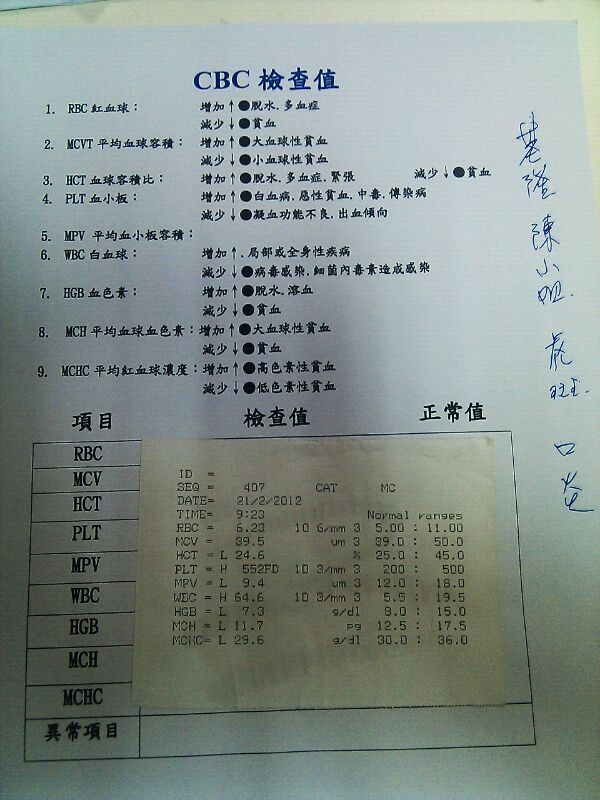 CBC 檢查值
1. RBC 紅血球： 增加↑●脫水,多血症
減少↓●貧血
2. MCVT 平均血球容積： 增加↑●大血球性貧血
減少↓●小血球性貧血
3. HCT 血球容積比： 增加↑●脫水,多血症,緊張 減少↓●貧血
4. PLT 血小板： 增加↑●白血病,惡性貧血,中毒,傳染病
減少↓●凝血功能不良,出血傾向
5. MPV 平均血小板容積：
6. WBC 白血球： 增加↑,局部或全身性疾病
減少↓●病毒感染,細菌內毒素造成感染
7. HGB 血色素： 增加↑●脫水,溶血
減少↓●貧血
8. MCH 平均血球血色素： 增加↑●大血球性貧血
減少↓●貧血
9. MCHC 平均紅血球濃度： 增加↑●高色素性貧血
減少↓●低色素性貧血
項目 檢查值 正常值
RBC
MCV
HCT
PLT
MPV
WBC
HGB
MCH
MCHC
異常項目
ID =
SEQ = 407 CAT MC
DATE= 21/2/2012
TIME= 9:23 Normal ranges
RBC = 6.23 10 6/mm 3 5.00 : 11.00
MCV = 39.5 um 3 39.0 : 50.0
HCT = L 24.6 % 25.0 : 45.0
PLT = H 552FD 10 3/mm 3 200 : 500
MPV = L 9.4 um 3 12.0 : 18.0
WBC = H 64.6 10 3/mm 3 5.5 : 19.5
HGB = L 7.3 g/dl 8.0 : 15.0
MCH = L 11.7 pg 12.5 : 17.5
MCHC= L 29.6 g/dl 30.0 : 36.0
基隆 陳小姐 虎斑 口炎